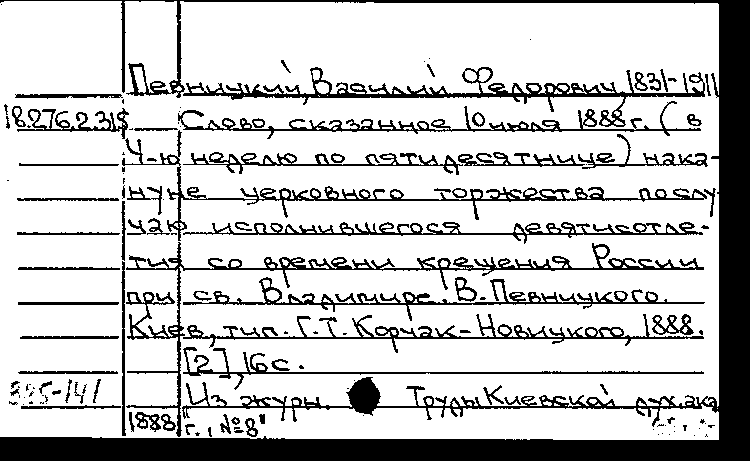 Певницкий, Василий Федорович, 1831-1911
18.276.2.315 Слово, сказанное 10 июля 1888 г. (в
4-ю неделю по пятидесятнице) нака-
нуне церковного торжества по слу-
чаю исполнившегося девятисотле-
тия со времени крещения России
при св. Владимире. В. Певницкого.
Киев, тип. Г. Т. Корчак-Новицкого, 1888.
[2], 16 с.
395-141 Из журн. "Труды Киевской дух. ака
1888 г., №8"